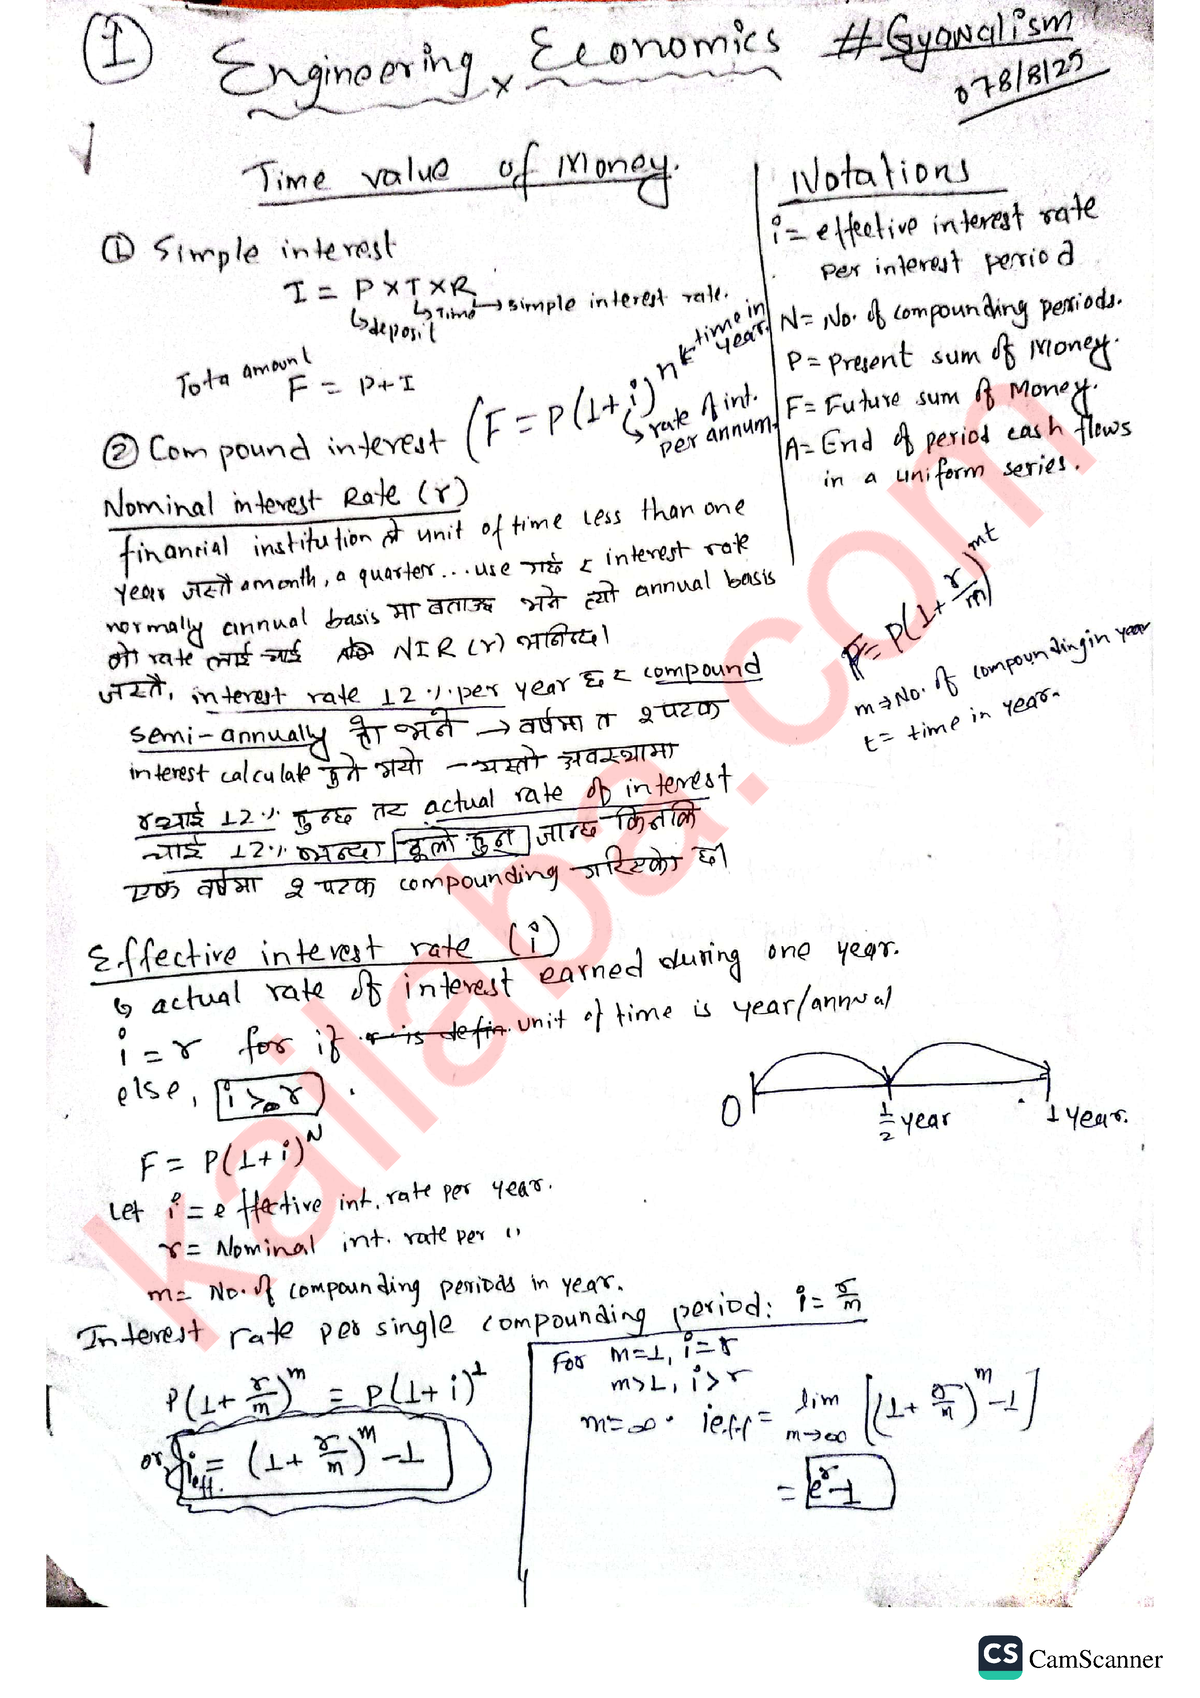 1
Engineering Economics #Gyawalism
078/8/25
Time value of Money.
① Simple interest
I = P×T×R
↳ deposit ↳ Time ↳ simple interest rate.
Tota amount
F = P+I
② Compound interest (F = P(1+i)^n
time in year.
↳ rate of int. per annum
Notations
i = effective interest rate
per interest period
N = No. of compounding periods.
P = Present sum of Money.
F = Future sum of Money.
A = End of period cash flows
in a uniform series.
Nominal interest Rate (r)
financial institution ले unit of time less than one
year जस्तै a month, a quarter... use गर्छ र interest rate
normally annual basis मा बताउछ भने त्यो annual basis
को rate लाई चाई NIR (r) भनिन्छ।
जस्तै, interest rate 12% per year छ र compound
semi-annually हो भने → वर्षमा त २ पटक
interest calculate हुने भयो - यस्तो अवस्थामा
r चाई 12% हुन्छ तर actual rate of interest
चाई 12% भन्दा ठूलो हुन जान्छ किनकि
एक वर्षमा २ पटक compounding गरिएको छ।
F = P(1+r/m)^mt
m → No. of compounding in year
t = time in year.
Effective interest rate (i)
↳ actual rate of interest earned during one year.
i = r for if r is defin. unit of time is year/annual
else, i > r
0 1/2 year 1 year.
F = P(1+i)^N
Let i = effective int. rate per year.
r = Nominal int. rate per "
m = No. of compounding periods in year.
Interest rate per single compounding period: i = r/m
P(1+r/m)^m = P(1+i)^1
or, i eff. = (1+r/m)^m -1
For m=1, i=r
m>1, i>r
m=∞. ieff = lim m→∞ [(1+r/m)^m -1]
= e^r-1
kailaba.com
CS CamScanner